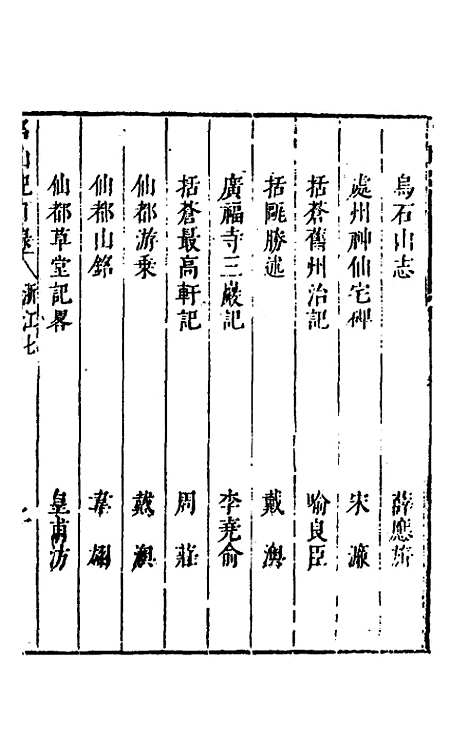 烏石山志 薛應旂
處州神仙宅碑 宋濂
括蒼舊州治記 喻良臣
括甌勝述 戴澳
廣福寺三巖記 李堯俞
括蒼最高軒記 周莊
仙都游乗 戴澳
仙都山銘
仙都草堂記畧 皇甫汸
名山記目錄 浙江七